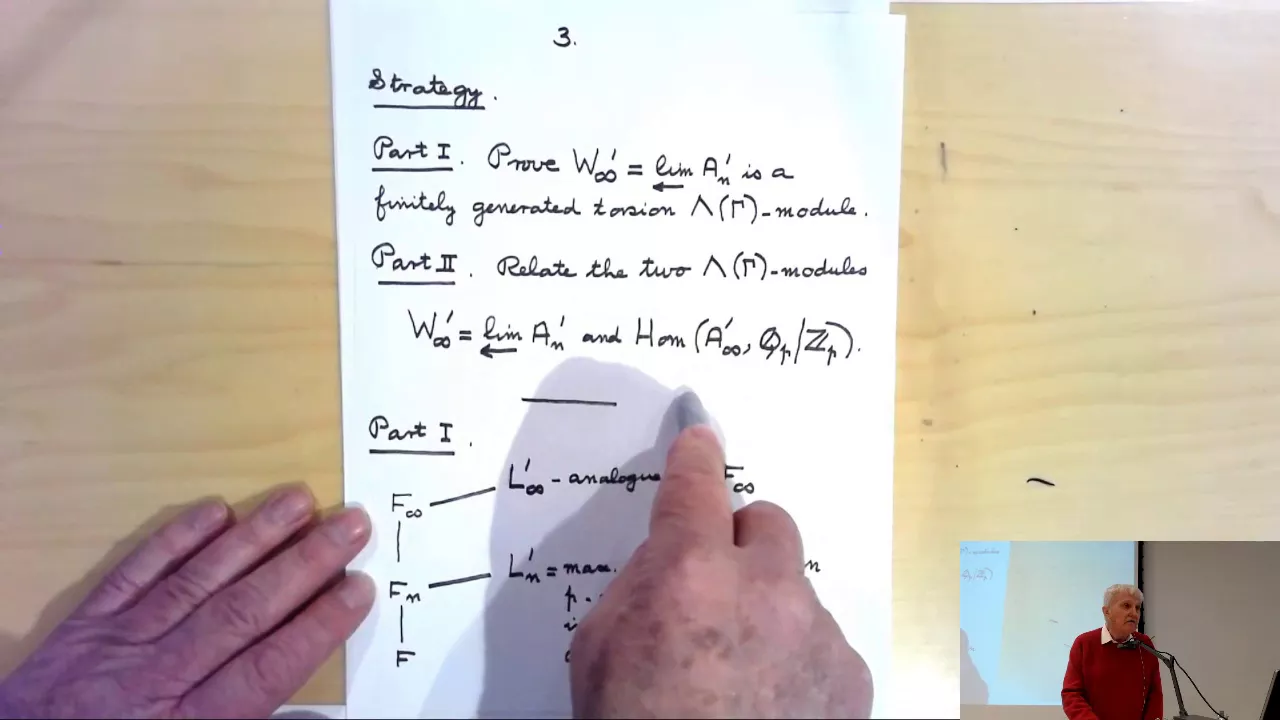 3.
Strategy.
Part I. Prove W'∞ = lim← A'n is a
finitely generated torsion Λ(Γ)-module.
Part II. Relate the two Λ(Γ)-modules
W'∞ = lim← A'n and Hom(A'∞, ℚp/ℤp).
Part I.
L'∞ - analogue F∞
F∞
L'n = max. n
Fn
p -
F